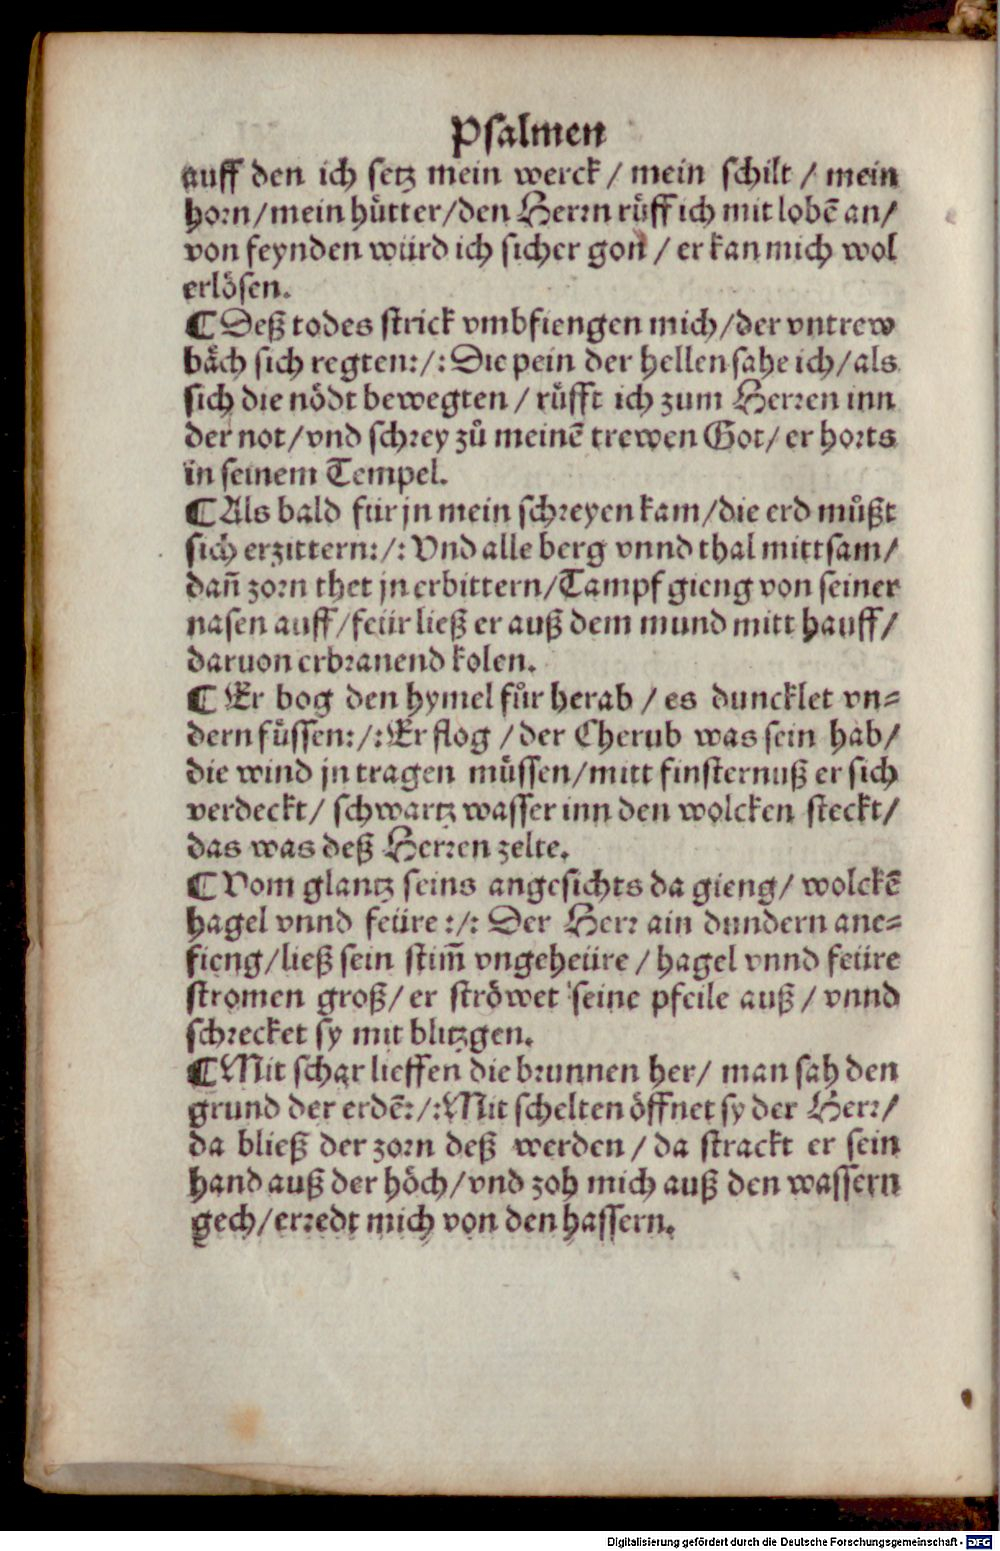 Psalmen
auff den ich setz mein werck / mein schilt / mein
horn / mein huͤtter / den Herrn ruͤff ich mit lobē an /
von feynden würd ich sicher gon / er kan mich wol
erlösen.
¶ Deß todes strick vmbfiengen mich / der vntrew
baͤch sich regten :/: Die pein der hellen sahe ich / als
sich die nödt bewegten / ruͤfft ich zum Herren inn
der not / vnd schrey zuͦ meinē trewen Got / er horts
in seinem Tempel.
¶ Als bald für jn mein schreyen kam / die erd muͤßt
sich erzittern :/: Vnd alle berg vnnd thal mittsam /
dañ zorn thet jn erbittern / Tampf gieng von seiner
nasen auff / feür ließ er auß dem mund mitt hauff /
daruon erbranend kolen.
¶ Er bog den hymel fuͤr herab / es duncklet vn=
dern fuͤssen :/: Er flog / der Cherub was sein hab /
die wind jn tragen muͤssen / mitt finsternuß er sich
verdeckt / schwartz wasser inn den wolcken steckt /
das was deß Herren zelte.
¶ Vom glantz seins angesichts da gieng / wolckē
hagel vnnd feüre :/: Der Herr ain dundern ane=
fieng / ließ sein stim̄ vngeheüre / hagel vnnd feüre
stromen groß / er ströwet seine pfeile auß / vnnd
schrecket sy mit blitzgen.
¶ Mit schar lieffen die brunnen her / man sah den
grund der erdē :/: Mit schelten öffnet sy der Herr /
da bließ der zorn deß werden / da strackt er sein
hand auß der höch / vnd zoh mich auß den wassern
gech / erredt mich von den hassern.
Digitalisierung gefördert durch die Deutsche Forschungsgemeinschaft - DFG